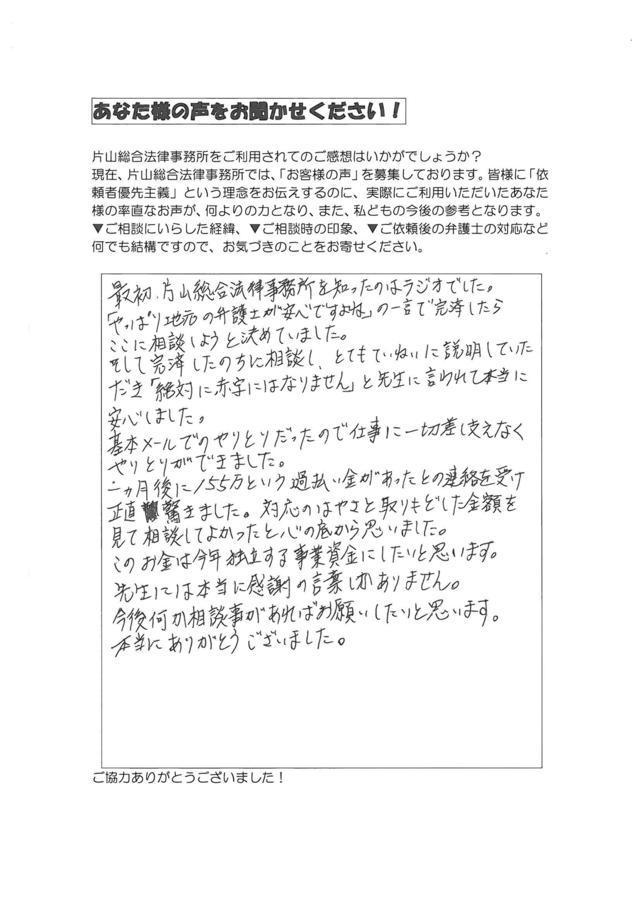 あなた様の声をお聞かせください！
片山総合法律事務所をご利用されてのご感想はいかがでしょうか？
現在、片山総合法律事務所では、「お客様の声」を募集しております。皆様に「依
頼者優先主義」という理念をお伝えするのに、実際にご利用いただいたあなた
様の率直なお声が、何よりの力となり、また、私どもの今後の参考となります。
▼ご相談にいらした経緯、▼ご相談時の印象、▼ご依頼後の弁護士の対応など
何でも結構ですので、お気づきのことをお寄せください。
最初、片山総合法律事務所を知ったのはラジオでした。
「やっぱり地元の弁護士が安心ですよね」の一言で完済したら
ここに相談しようと決めていました。
そして完済したのちに相談し、とてもていねいに説明していた
だき「絶対に赤字にはなりません」と先生に言われて本当に
安心しました。
基本メールでのやりとりだったので仕事に一切差し支えなく
やりとりができました。
二ヵ月後に155万という過払い金があったとの連絡を受け
正直驚きました。対応のはやさと取りもどした金額を
見て相談してよかったと心の底から思いました。
このお金は今年独立する事業資金にしたいと思います。
先生には本当に感謝の言葉しかありません。
今後何か相談事があればお願いしたいと思います。
本当にありがとうございました。
ご協力ありがとうございました！